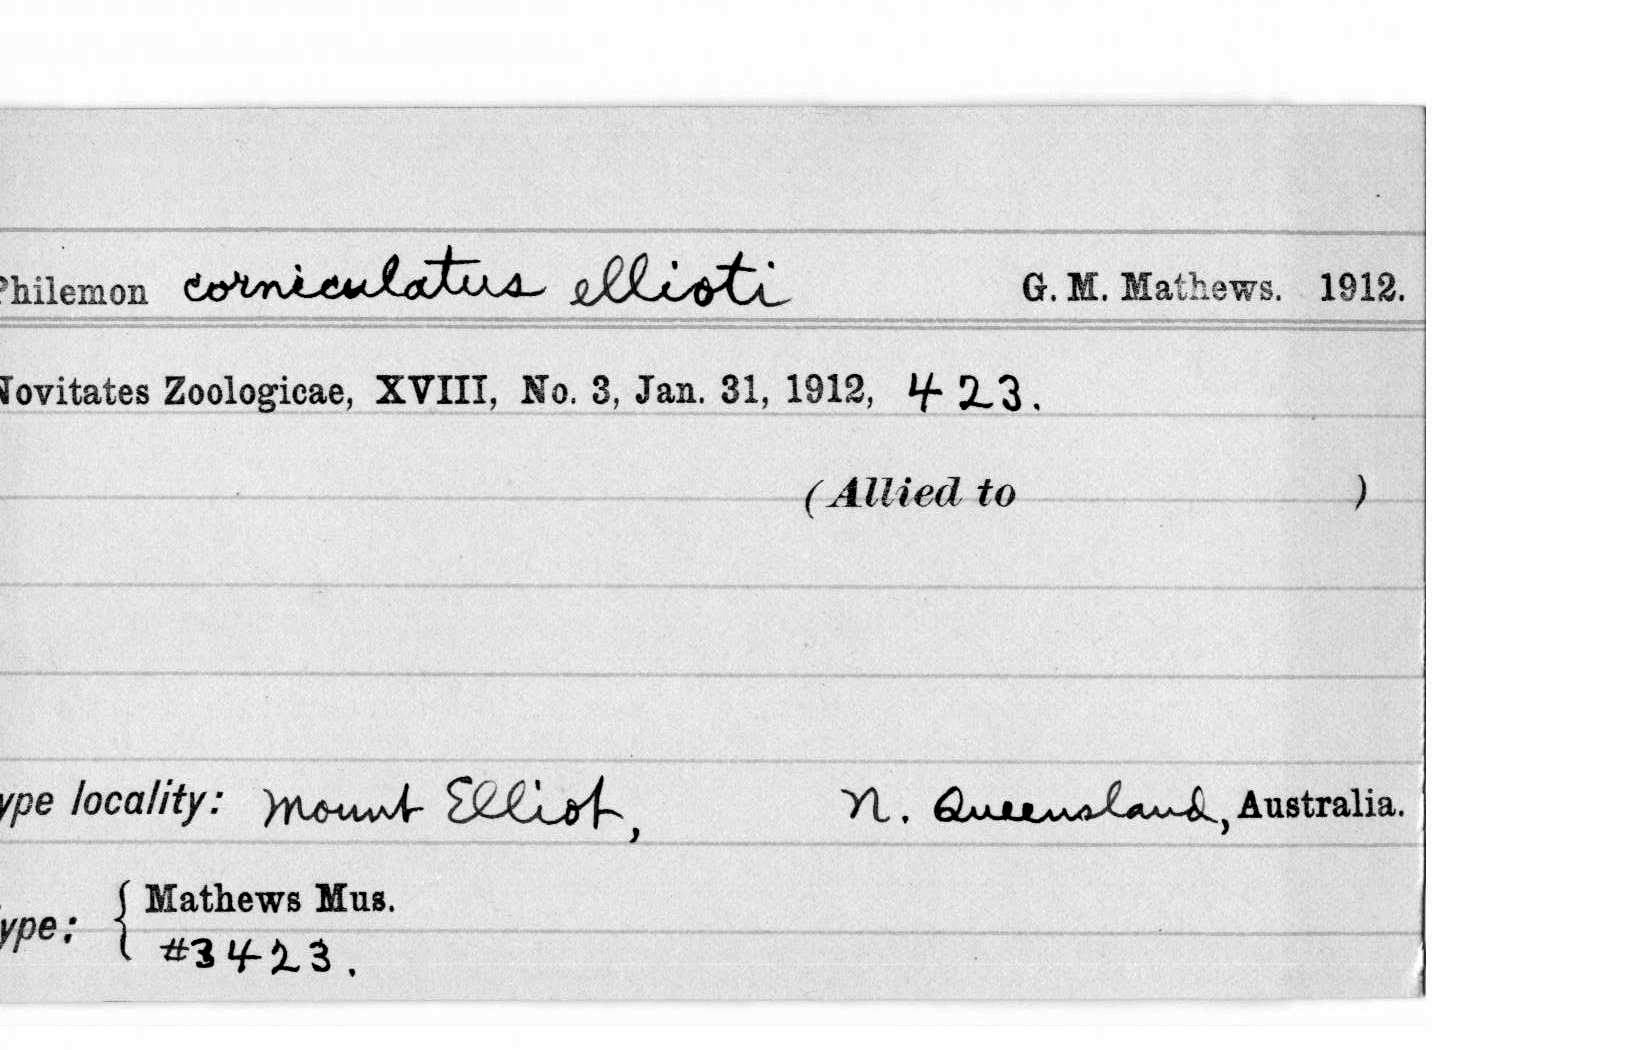 Philemon corniculatus ellioti G. M. Mathews. 1912.
Novitates Zoologicae, XVIII, No. 3, Jan. 31, 1912, 423.
(Allied to )
ype locality: Mount Elliot, N. Queensland, Australia.
ype: { Mathews Mus.
#3423.